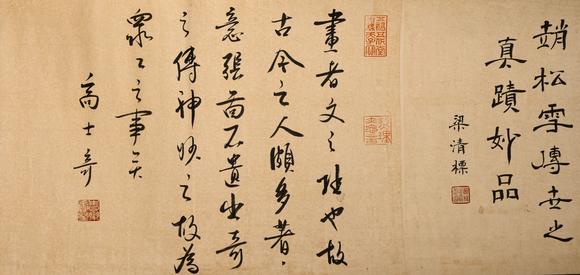 趙松雪傳世之
真蹟妙品
梁清標
畫者文之也故
古今之人頗多著
意張不遺出奇
之傳神妙之故為
之事矣
高士奇